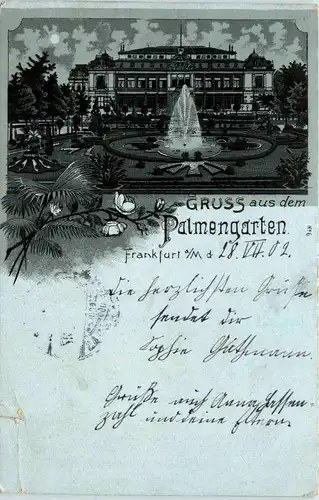 GRUSS aus dem
Palmengarten.
Frankfurt a/M d. 28. VII. 02.
Die herzlichsten Grüße
sendet dir
Sophie Guthmann.
Grüße auch Anna
und deine Eltern.